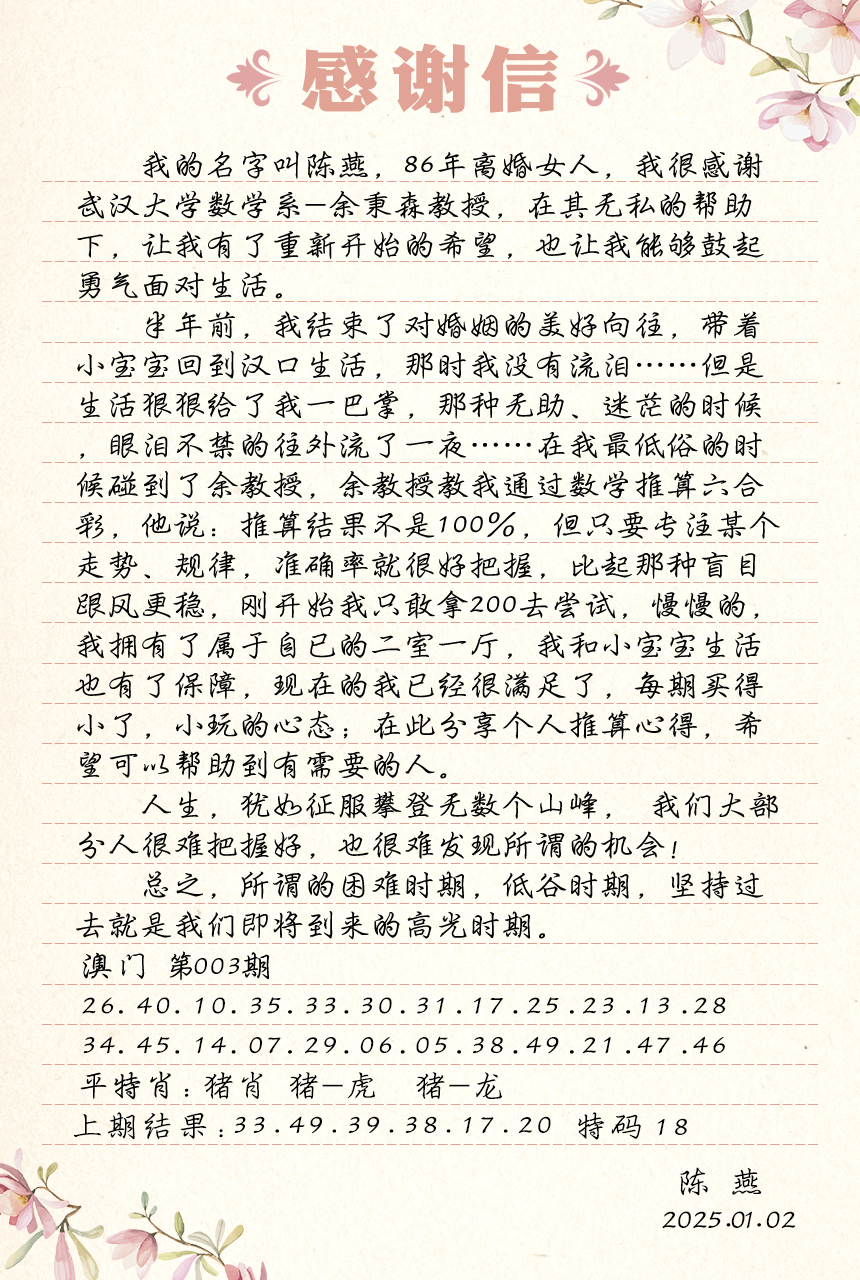 感谢信
我的名字叫陈燕，86年离婚女人，我很感谢
武汉大学数学系—余秉森教授，在其无私的帮助
下，让我有了重新开始的希望，也让我能够鼓起
勇气面对生活。
半年前，我结束了对婚姻的美好向往，带着
小宝宝回到汉口生活，那时我没有流泪……但是
生活狠狠给了我一巴掌，那种无助、迷茫的时候
，眼泪不禁的往外流了一夜……在我最低俗的时
候碰到了余教授，余教授教我通过数学推算六合
彩，他说：推算结果不是100%，但只要专注某个
走势、规律，准确率就很好把握，比起那种盲目
跟风更稳，刚开始我只敢拿200去尝试，慢慢的，
我拥有了属于自已的二室一厅，我和小宝宝生活
也有了保障，现在的我已经很满足了，每期买得
小了，小玩的心态；在此分享个人推算心得，希
望可以帮助到有需要的人。
人生，犹如征服攀登无数个山峰， 我们大部
分人很难把握好，也很难发现所谓的机会！
总之，所谓的困难时期，低谷时期，坚持过
去就是我们即将到来的高光时期。
澳门 第003期
26.40.10.35.33.30.31.17.25.23.13.28
34.45.14.07.29.06.05.38.49.21.47.46
平特肖：猪肖 猪—虎 猪—龙
上期结果：33.49.39.38.17.20 特码 18
陈 燕
2025.01.02